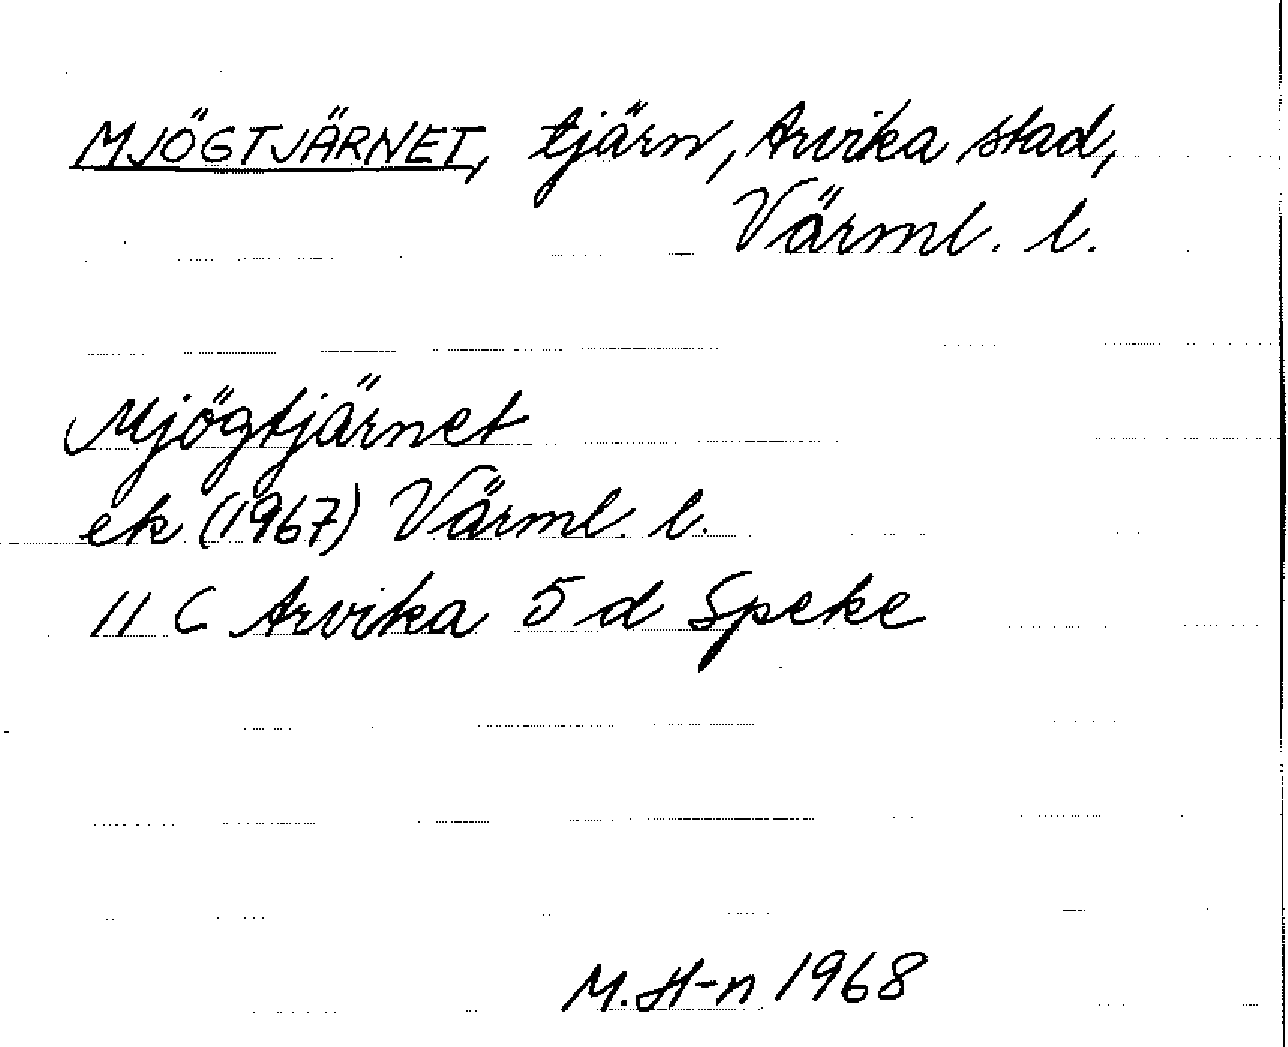 MJÖGTJÄRNET, tjärn, Arvika stad,
Värml. l.
Mjögtjärnet
ek (1967) Värml. l.
11 C Arvika 5 d Speke
M. H-n 1968